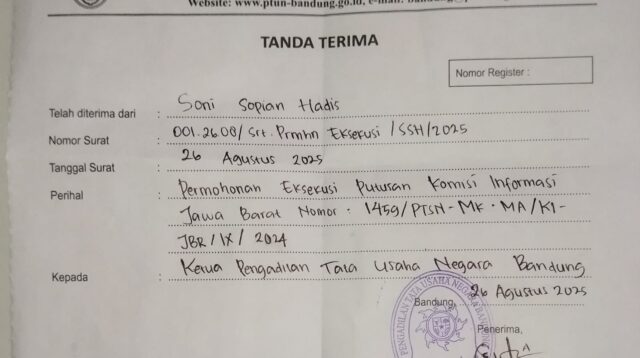 Website: www.ptun-bandung.go.id, e-mail:
TANDA TERIMA
Nomor Register :
Telah diterima dari : Soni Sopian Hadis
Nomor Surat : 001.2608/Srt.Prmhn Eksekusi/SSH/2025
Tanggal Surat : 26 Agustus 2025
Perihal : Permohonan Eksekusi Putusan Komisi Informasi
Jawa Barat Nomor : 1459/PTSN-MK.MA/KI-
JBR/IX/2024
Kepada : Ketua Pengadilan Tata Usaha Negara Bandung
Bandung, 26 Agustus 2025
Penerima,
PENGADILAN TATA USAHA NEGARA